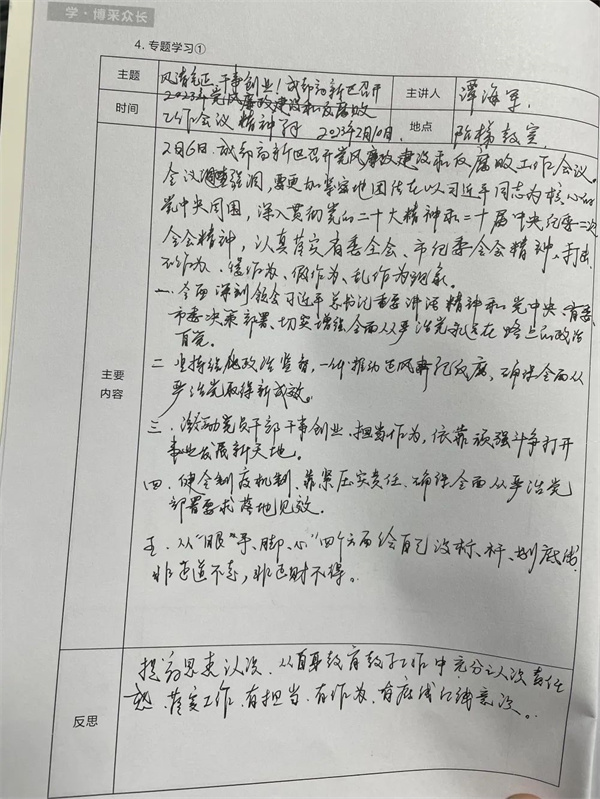 学·博采众长
4. 专题学习①
主题
风清气正 干事创业！成都高新区召开
2023年党风廉政建设和反腐败
工作会议精神
主讲人
谭海军
时间
2023年2月10日
地点
阶梯教室
主要
内容
2月6日，成都高新区召开党风廉政建设和反腐败工作会议。
会议强调，要更加紧密地团结在以习近平同志为核心的
党中央周围，深入贯彻党的二十大精神和二十届中央纪委二次
全会精神，认真落实省委全会、市纪委全会精神，打击
不作为、慢作为、假作为、乱作为现象。
一、全面深刻领会习近平总书记重要讲话精神和党中央、省委、
市委决策部署、切实增强全面从严治党永远在路上的政治
自觉。
二、坚持强化政治监督，一体推动正风肃纪反腐，确保全面从
严治党取得新成效。
三、激励党员干部干事创业、担当作为，依靠顽强斗争打开
事业发展新天地。
四、健全制度机制、靠紧压实责任、确保全面从严治党
部署要求落地见效。
五、从“眼、手、脚、心”四个方面给自己设标、杆、划底线
非道不志，非财不得。
反思
提高思想认识、从自身教育教学工作中充分认识责任
落实工作、有担当、有作为、有底线红线意识。